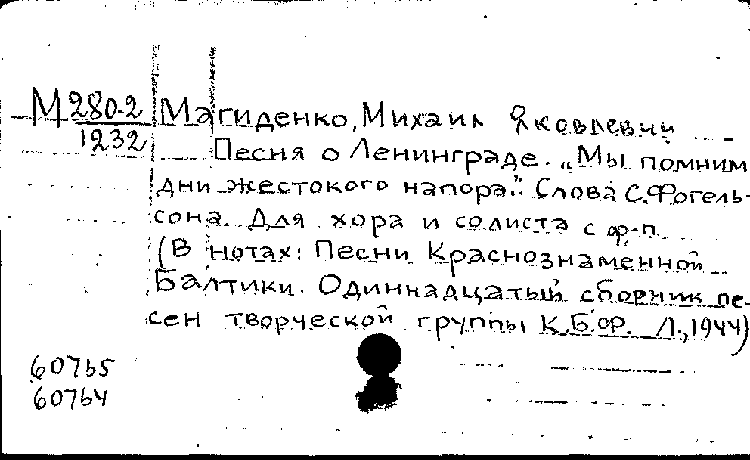 М 280-2 Магиденко, Михаил Яковлевич
1232 Песня о Ленинграде. „Мы помним
дни жестокого напора." Слова С. Фогель-
сона. Для хора и солиста с ф-п.
(В нотах: Песни Краснознаменной
Балтики. Одиннадцатый сборник пе-
сен творческой группы К.Б.Ф. Л., 1944)
60765
60764